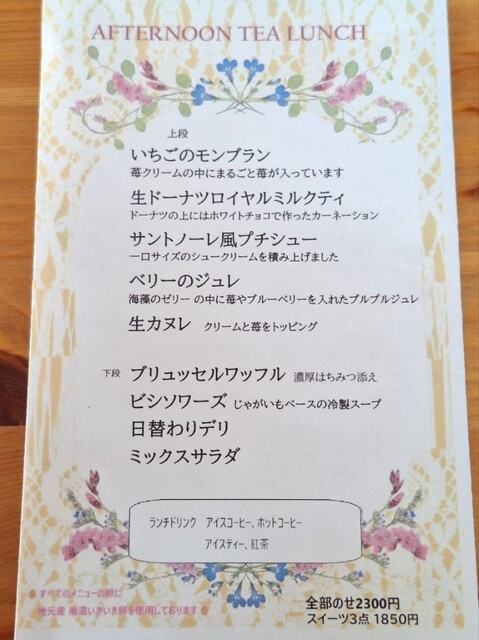 AFTERNOON TEA LUNCH
上段
いちごのモンブラン
苺クリームの中にまるごと苺が入っています
生ドーナツロイヤルミルクティ
ドーナツの上にはホワイトチョコで作ったカーネーション
サントノーレ風プチシュー
一口サイズのシュークリームを積み上げました
ベリーのジュレ
海藻のゼリーの中に苺やブルーベリーを入れたプルプルジュレ
生カヌレ クリームと苺をトッピング
下段 ブリュッセルワッフル 濃厚はちみつ添え
ビシソワーズ じゃがいもベースの冷製スープ
日替わりデリ
ミックスサラダ
ランチドリンク アイスコーヒー、ホットコーヒー
アイスティー、紅茶
すべてのメニューの卵に
地元産 南濃いきいき卵を使用しております
全部のせ2300円
スイーツ3点 1850円